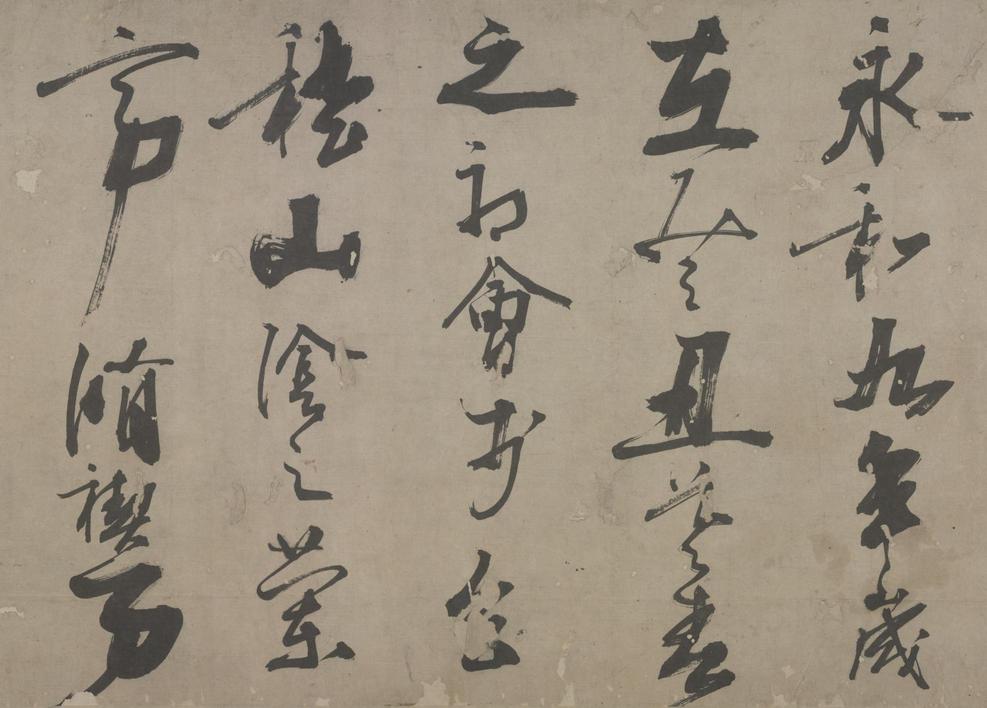 永和九年歲
在癸丑暮春
之初會於會
稽山陰之蘭
亭脩禊事